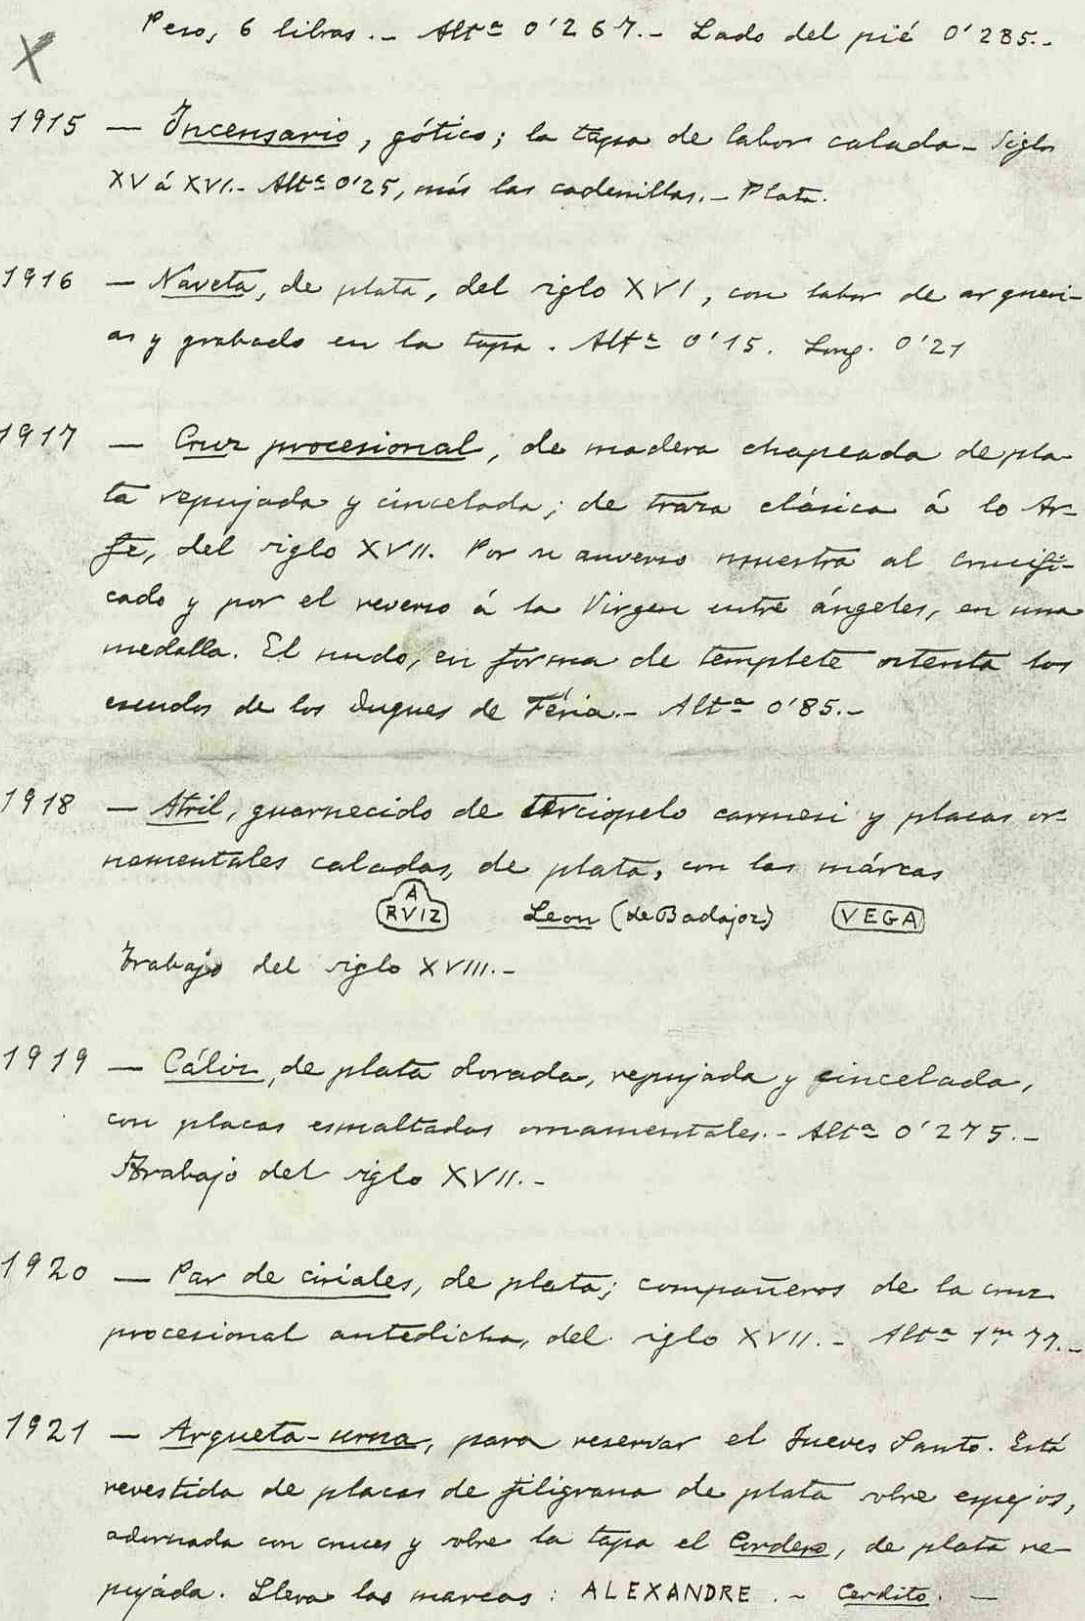 Peso, 6 libras.- Altª 0'267.- Lado del pié 0'285.-
X
1915 — Incensario, gótico; la tapa de labor calada- Siglo
XV á XVI.- Altª 0'25, más las cadenillas.- Plata.
1916 — Naveta, de plata, del siglo XVI, con labor de arqueri-
as y grabado en la tapa. Altª 0'15. Long. 0'21
1917 — Cruz procesional, de madera chapeada de pla-
ta repujada y cincelada; de traza clásica á lo Ar-
fe, del siglo XVII. Por su anverso muestra al Crucifi-
cado y por el reverso á la Virgen entre ángeles, en una
medalla. El nudo, en forma de templete ostenta los
escudos de los Duques de Féria.- Altª 0'85.-
1918 — Atril, guarnecido de terciopelo carmesi y placas or-
namentales caladas, de plata, con las márcas
A RVIZ Leon (de Badajoz) VEGA
Trabajo del siglo XVIII.-
1919 — Cáliz, de plata dorada, repujada y cincelada,
con placas esmaltadas ornamentales.- Altª 0'275.-
Trabajo del siglo XVII.-
1920 — Par de ciriales, de plata; compañeros de la cruz
procesional antedicha, del siglo XVII.- Altª 1m 77.-
1921 — Arqueta-urna, para reservar el Jueves Santo. Está
revestida de placas de filigrana de plata sobre espejos,
adornada con cruces y sobre la tapa el Cordero, de plata re-
pujáda. Lleva las marcas: ALEXANDRE .- Cerdito. —